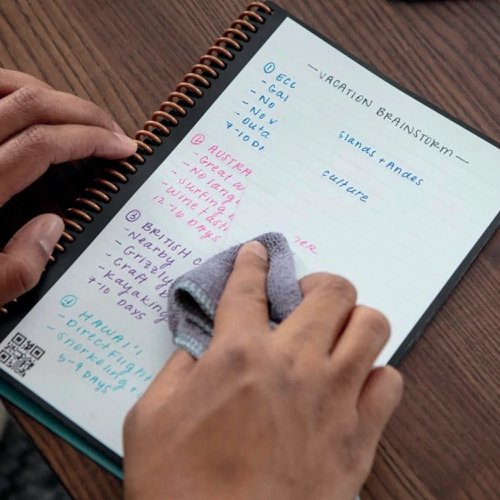 — VACATION BRAINSTORM —
① EC
- Gal slands + Andes
- No
- No v culture
- Outd
7-10 D
② AUSTRA
- Great w
- No langu
- Surfing
- Wine tasti
12-16 DAYS
③ BRITISH C
- Nearby
- Grizzly
- Craft b
- Kayaking
7-10 DAYS
④ HAWAI'I
- Direct Flight
- Snorkeling +
6-9 DAYS